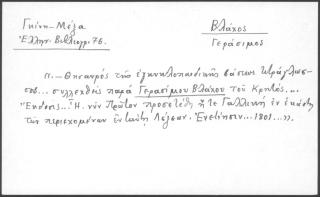 Γκίνη - Μέξα
Βλάχος
Ἑλλην. Βιβλιογρ. 76.
Γεράσιμος
Π. — Θησαυρός τῆς ἐγκυκλοπαιδικῆς βάσεως τετράγλωσ-
σος... συλλεχθείς παρά Γερασίμου Βλάχου τοῦ Κρητός...
"Ἔκδοσις... Ἡ νῦν Πρῶτον προσετέθη ἥ τε Γαλλική ἐν ἑκάστῃ
τῶν περιεχομένων ἐν ταύτῃ Λέξεων. Ἐνετίησιν... 1801...».